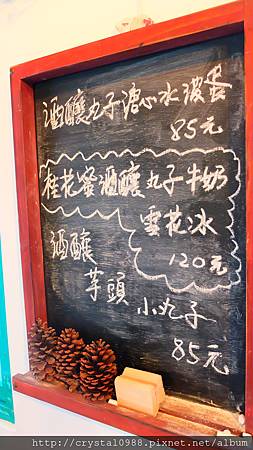 酒釀丸子濃心水波蛋
85元
桂花蜜酒釀丸子牛奶
雪花冰
120元
酒釀
芋頭
小丸子
85元
http://crystal0988.pixnet.net/album